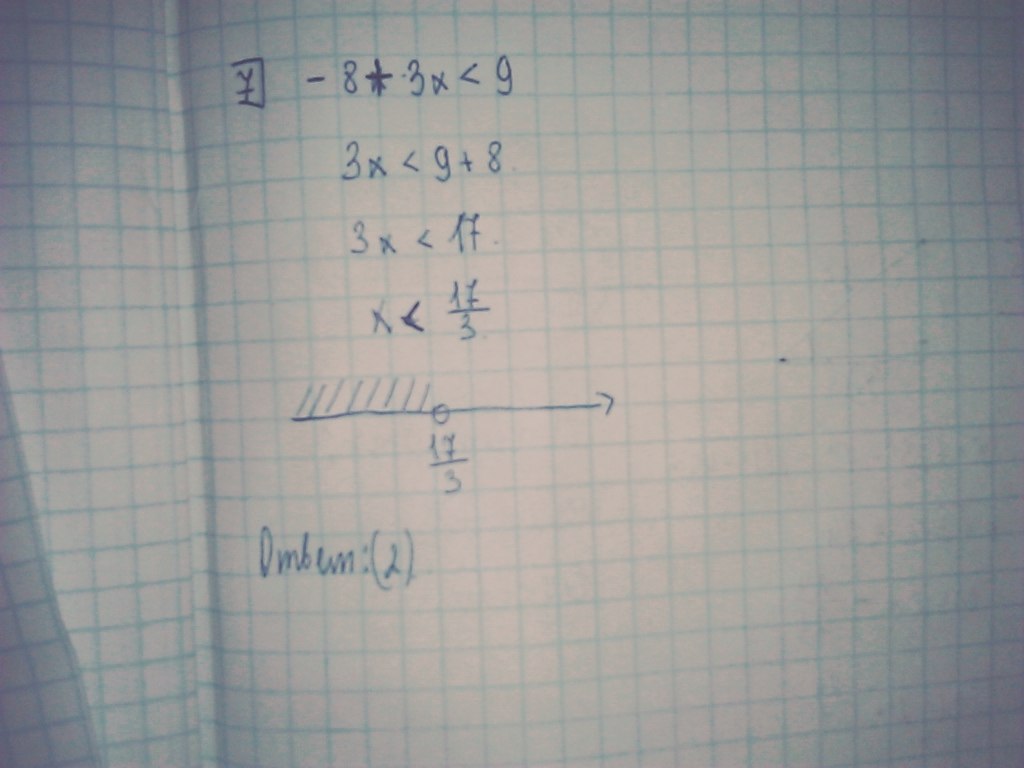 7 - 8 + 3x < 9
3x < 9 + 8
3x < 17
x < 17/3
17/3
Ответ: (2)